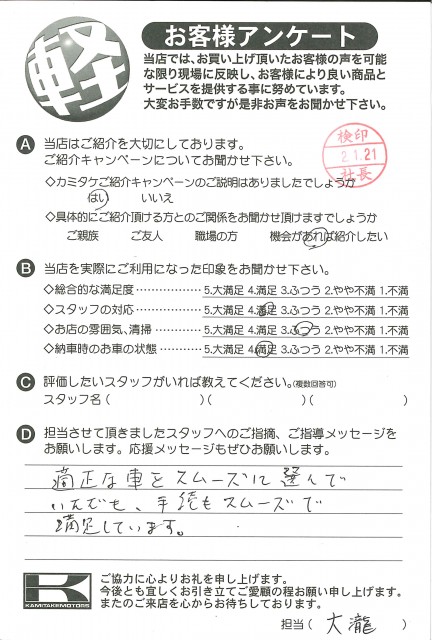 軽
お客様アンケート
当店では、お買い上げ頂いたお客様の声を可能
な限り現場に反映し、お客様により良い商品と
サービスを提供する事に努めています。
大変お手数ですが是非お声をお聞かせ下さい。
A 当店はご紹介を大切にしております。
ご紹介キャンペーンについてお聞かせ下さい。
検印
2.1.21
社長
◇カミタケご紹介キャンペーンのご説明はありましたでしょうか
はい いいえ
◇具体的にご紹介頂ける方とのご関係をお聞かせ頂けますでしょうか
ご親族 ご友人 職場の方 機会があれば紹介したい
B 当店を実際にご利用になった印象をお聞かせ下さい。
◇総合的な満足度 ……………… 5.大満足 4.満足 3.ふつう 2.やや不満 1.不満
◇スタッフの対応 ……………… 5.大満足 4.満足 3.ふつう 2.やや不満 1.不満
◇お店の雰囲気、清掃 ………… 5.大満足 4.満足 3.ふつう 2.やや不満 1.不満
◇納車時のお車の状態 ………… 5.大満足 4.満足 3.ふつう 2.やや不満 1.不満
C 評価したいスタッフがいれば教えてください。(複数回答可)
スタッフ名 ( )( )( )
D 担当させて頂きましたスタッフへのご指摘、ご指導メッセージを
お願いします。応援メッセージもぜひお願いします。
適正な車をスムーズに選んで
いただき、手続もスムーズで
満足しています。
K
KAMITAKEMOTORS
ご協力に心よりお礼を申し上げます。
今後とも宜しくお引き立てご愛顧の程お願い申し上げます。
またのご来店を心からお待ちしております。
担当 ( 大瀧 )